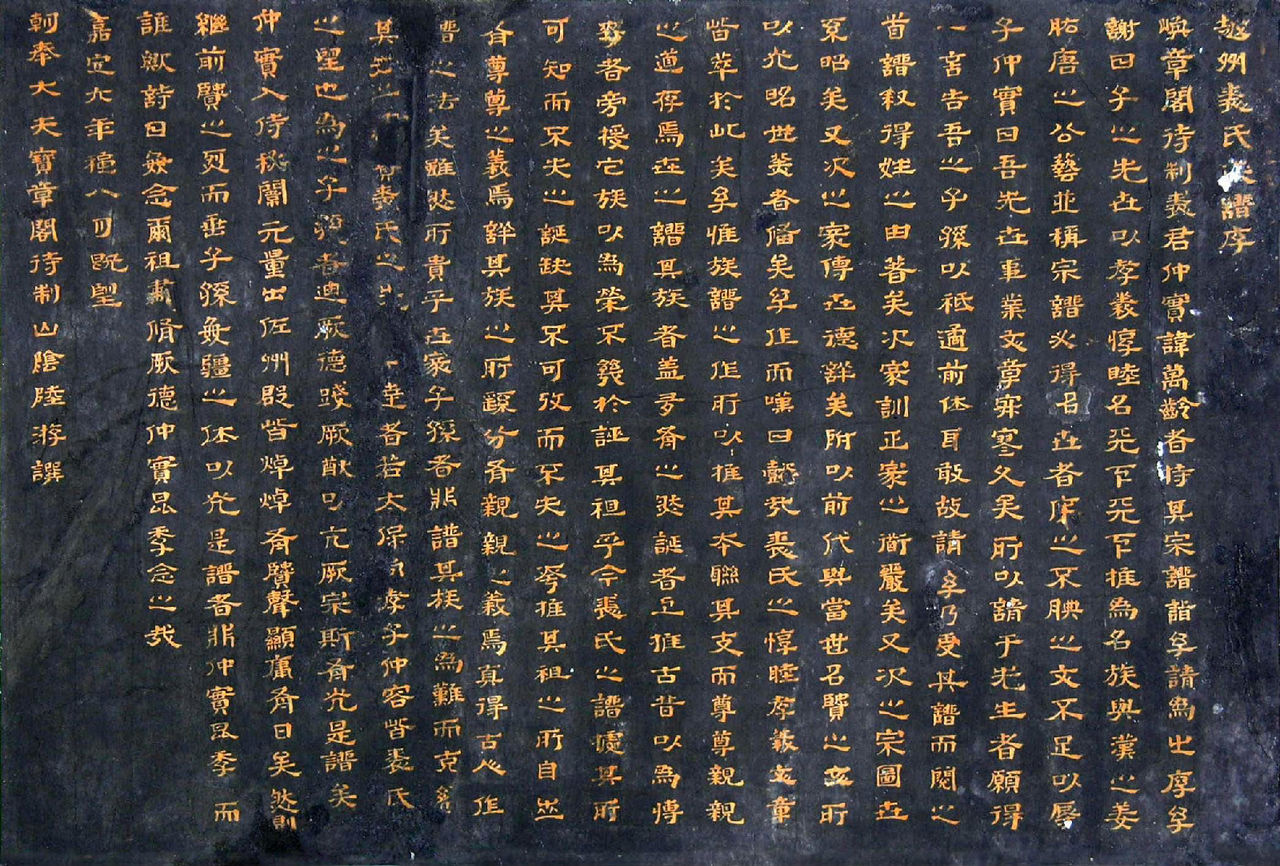 越州裘氏族譜序
煥章閣待制裘君仲實諱萬齡者持其宗譜詣予請為之序予
謝曰子之先世以孝義惇睦名冠下冠下推為名族與漢之姜
肱唐之公藝並稱宗譜必得名世者序之不腆之文不足以辱
子仲實曰吾先世事業文章寂寥久矣所以請于先生者願得
一言告吾之子孫以祗遹前休耳敢故請予乃受其譜而閱之
首譜叙得姓之由著矣次家訓正家之術嚴矣又次之宗圖世
系昭矣又次之家傳世德詳矣附以前代與當世名賢之文所
以光昭世美者備矣予作而嘆曰懿哉裘氏之惇睦孝義文章
皆萃於此矣予惟族譜之作所以推其本聯其支而尊尊親親
之道存焉世之譜其族者蓋多有之然誕者上推古昔以為博
夸者旁援它族以為榮不幾於誣其祖乎今裘氏之譜牘其所
可知而不失之誕缺其不可攷而不失之夸推其祖之所自出
有尊尊之義焉詳其族之所繇分有親親之義焉真得古人作
譜之法矣雖然所貴乎世家子孫者非譜其族之為難而克
其 之 裘氏之 達者若太保 孝子仲容皆裘氏
之望也為之子孫者迪厥德踐厥猷以亢厥宗斯有光是譜矣
仲實入侍秘閣元量出佐州郡皆焯焯有賢聲顯庸有日矣然則
繼前賢之烈而垂子孫無疆之休以光是譜者非仲實昆季而
誰歟詩曰無念爾祖聿脩厥德仲實昆季念之哉
嘉定六年穐八月既望
朝奉大夫寶章閣待制山陰陸游譔